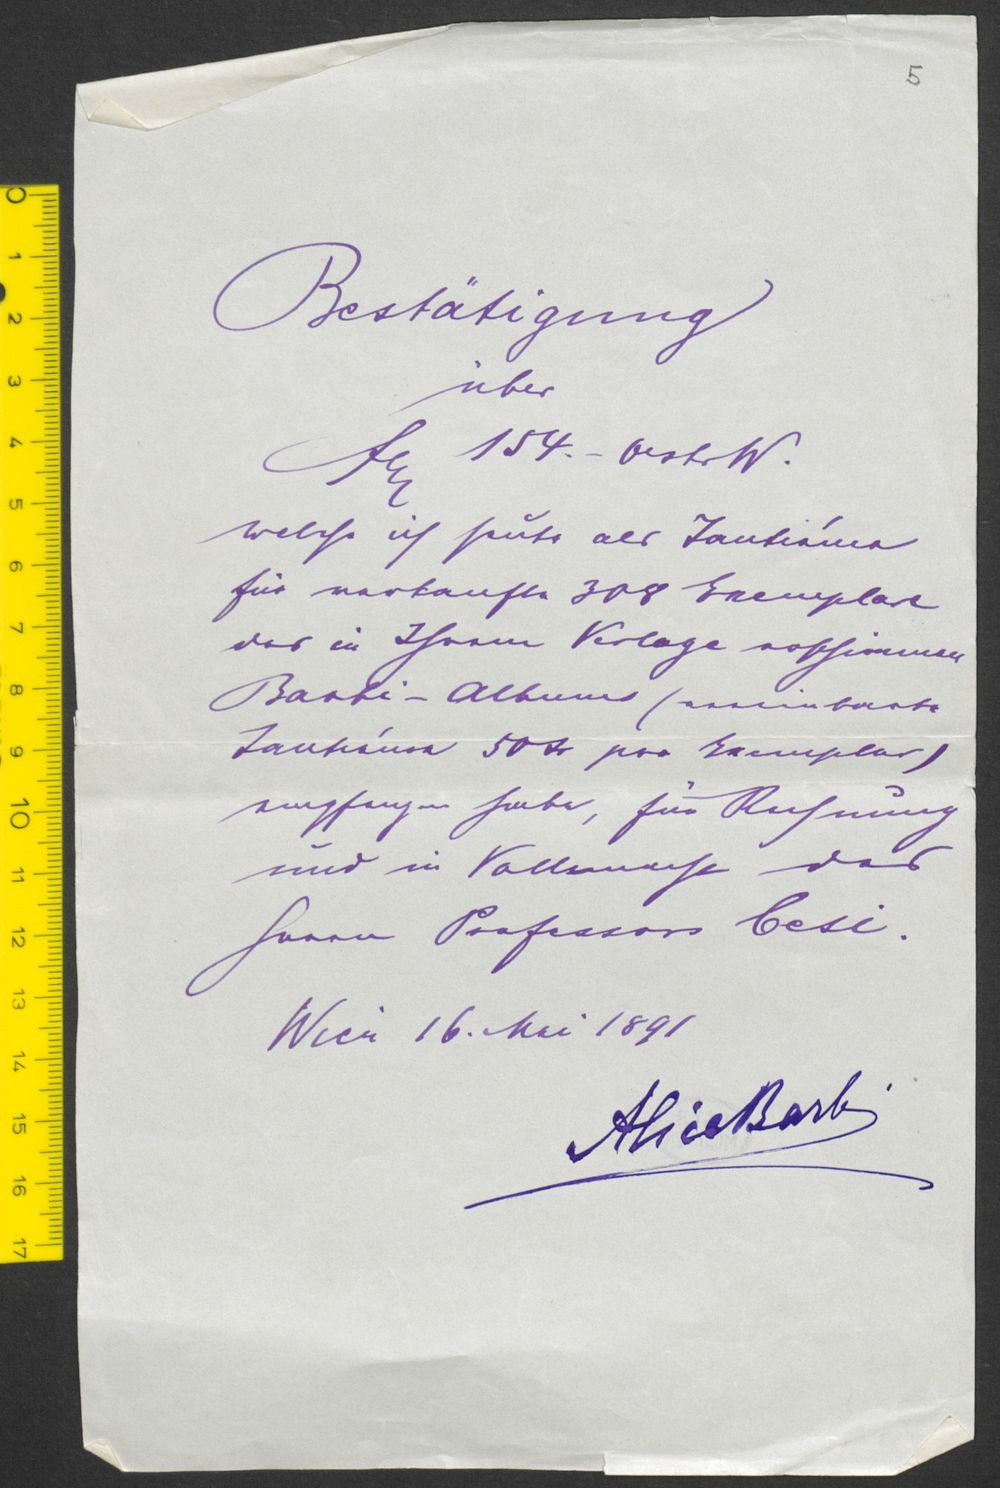 5
Bestätigung
über
fl 154.- oestr W.
welche ich heute als Tantième
für verkaufte 308 Exemplare
des in Ihrem Verlage erschienenen
Barbi-Albums (vereinbarte
Tantième 50 Kr pro Exemplar)
empfangen habe, für Rechnung
und in Vollmacht des
Herrn Professors Cesi.
Wien 16. Mai 1891
Alice Barbi
0 1 2 3 4 5 6 7 8 9 10 11 12 13 14 15 16 17